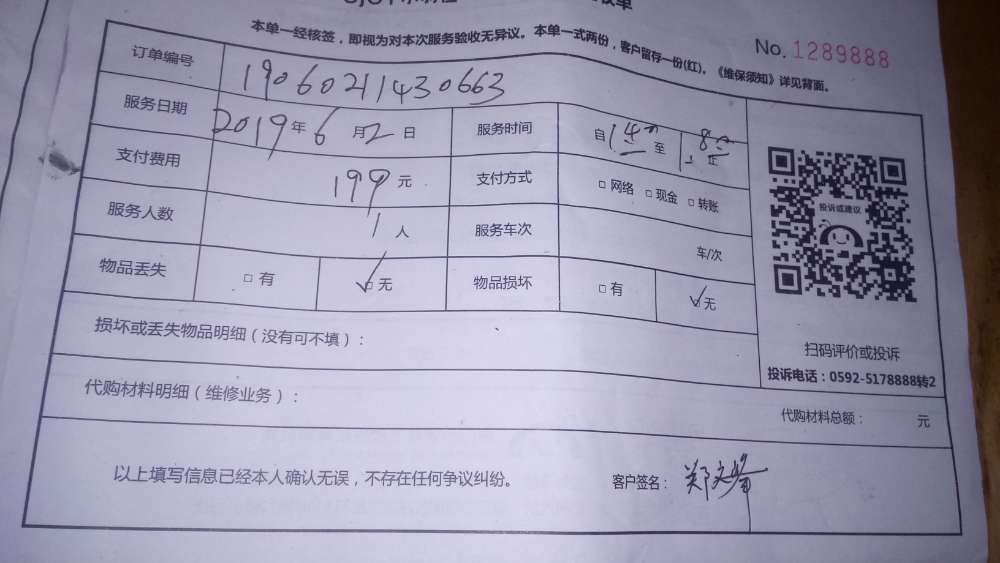 本单一经核签，即视为对本次服务验收无异议。本单一式两份，客户留存一份(红)。《维保须知》详见背面。
No. 1289888
订单编号 19060211430663
服务日期 2019年6月2日 服务时间 自14 至18
支付费用 199元 支付方式 □网络 □现金 □转账
服务人数 1人 服务车次 车/次
物品丢失 □有 ☑无 物品损坏 □有 ☑无
投诉或建议
损坏或丢失物品明细（没有可不填）：
扫码评价或投诉
投诉电话：0592-5178888转2
代购材料明细（维修业务）：
代购材料总额： 元
以上填写信息已经本人确认无误，不存在任何争议纠纷。
客户签名：郑文